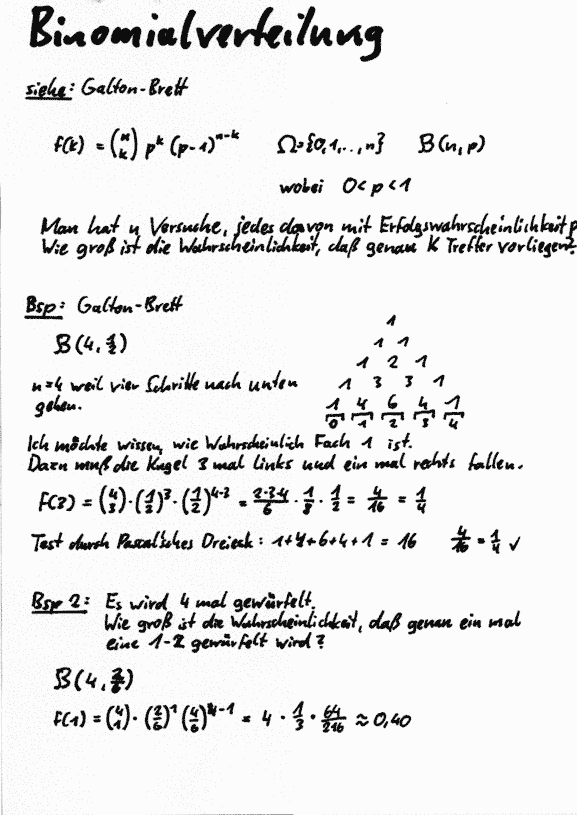 Binomialverteilung
siehe: Galton-Brett
f(k) = (n k) p^k (p-1)^n-k Ω={0,1,..,n} B(n,p)
wobei 0<p<1
Man hat n Versuche, jedes davon mit Erfolgswahrscheinlichkeit p
Wie groß ist die Wahrscheinlichkeit, daß genau K Treffer vorliegen?
Bsp: Galton-Brett
B(4,1/2)
1
1 1
1 2 1
n=4 weil vier Schritte nach unten
gehen.
1 3 3 1
1 4 6 4 1
0 1 2 3 4
Ich möchte wissen, wie Wahrscheinlich Fach 1 ist.
Dazu muß die Kugel 3 mal links und ein mal rechts fallen.
f(3) = (4 3)·(1/2)^3·(1/2)^4-3 = 2·3·4/6 · 1/8 · 1/2 = 4/16 = 1/4
Test durch Pascal'sches Dreieck: 1+4+6+4+1 = 16 4/16 = 1/4 ✓
Bsp 2: Es wird 4 mal gewürfelt.
Wie groß ist die Wahrscheinlichkeit, daß genau ein mal
eine 1-2 gewürfelt wird?
B(4,2/6)
f(1) = (4 1)·(2/6)^1 (4/6)^4-1 = 4 · 1/3 · 64/216 ≈ 0,40